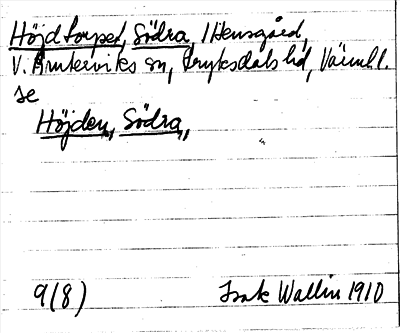 Höjdtorpet, Södra, /Hemsgård,
V. Ämterviks sn, Fryksdals hd, Värml.
se
Höjden, Södra,
9(8) Isak Wallin 1910